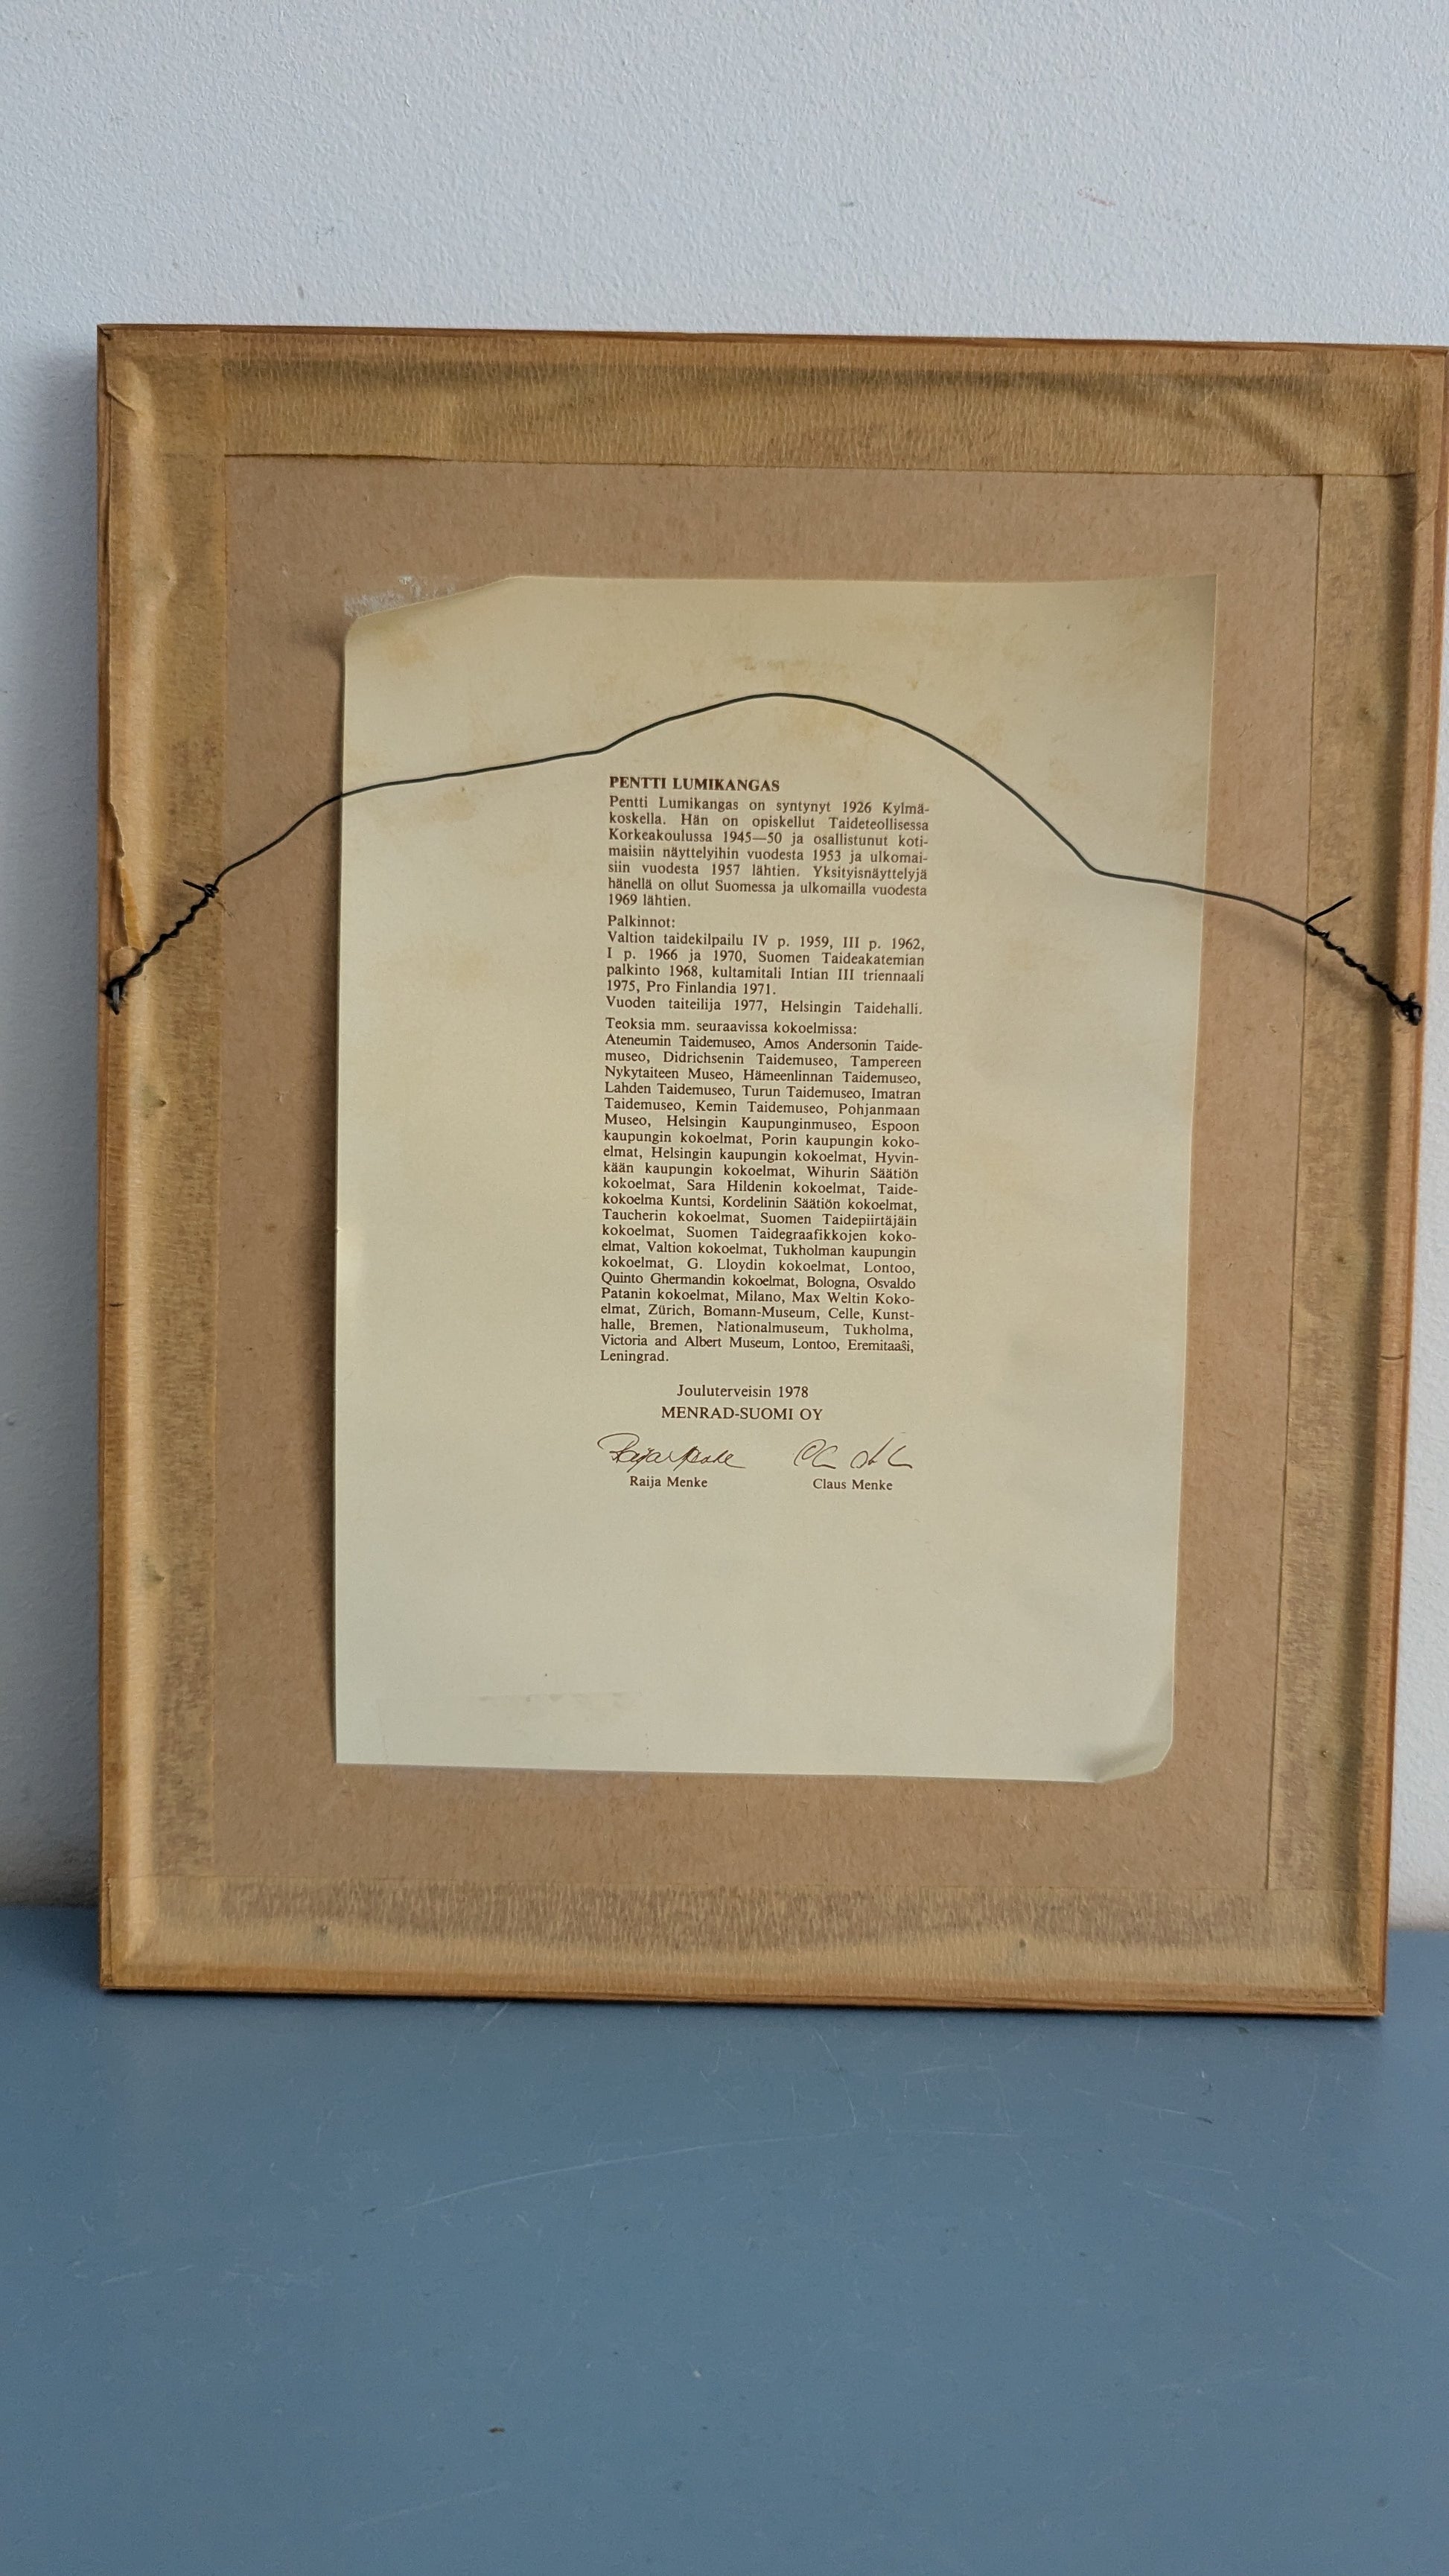 PENTTI LUMIKANGAS
Pentti Lumikangas on syntynyt 1926 Kylmä-
koskella. Hän on opiskellut Taideteollisessa
Korkeakoulussa 1945—50 ja osallistunut koti-
maisiin näyttelyihin vuodesta 1953 ja ulkomai-
siin vuodesta 1957 lähtien. Yksityisnäyttelyjä
hänellä on ollut Suomessa ja ulkomailla vuodesta
1969 lähtien.
Palkinnot:
Valtion taidekilpailu IV p. 1959, III p. 1962,
I p. 1966 ja 1970, Suomen Taideakatemian
palkinto 1968, kultamitali Intian III triennaali
1975, Pro Finlandia 1971.
Vuoden taiteilija 1977, Helsingin Taidehalli.
Teoksia mm. seuraavissa kokoelmissa:
Ateneumin Taidemuseo, Amos Andersonin Taide-
museo, Didrichsenin Taidemuseo, Tampereen
Nykytaiteen Museo, Hämeenlinnan Taidemuseo,
Lahden Taidemuseo, Turun Taidemuseo, Imatran
Taidemuseo, Kemin Taidemuseo, Pohjanmaan
Museo, Helsingin Kaupunginmuseo, Espoon
kaupungin kokoelmat, Porin kaupungin koko-
elmat, Helsingin kaupungin kokoelmat, Hyvin-
kään kaupungin kokoelmat, Wihurin Säätiön
kokoelmat, Sara Hildenin kokoelmat, Taide-
kokoelma Kuntsi, Kordelinin Säätiön kokoelmat,
Taucherin kokoelmat, Suomen Taidepiirtäjäin
kokoelmat, Suomen Taidegraafikkojen koko-
elmat, Valtion kokoelmat, Tukholman kaupungin
kokoelmat, G. Lloydin kokoelmat, Lontoo,
Quinto Ghermandin kokoelmat, Bologna, Osvaldo
Patanin kokoelmat, Milano, Max Weltin Koko-
elmat, Zürich, Bomann-Museum, Celle, Kunst-
halle, Bremen, Nationalmuseum, Tukholma,
Victoria and Albert Museum, Lontoo, Eremitaaŝi,
Leningrad.
Jouluterveisin 1978
MENRAD-SUOMI OY
Raija Menke Claus Menke